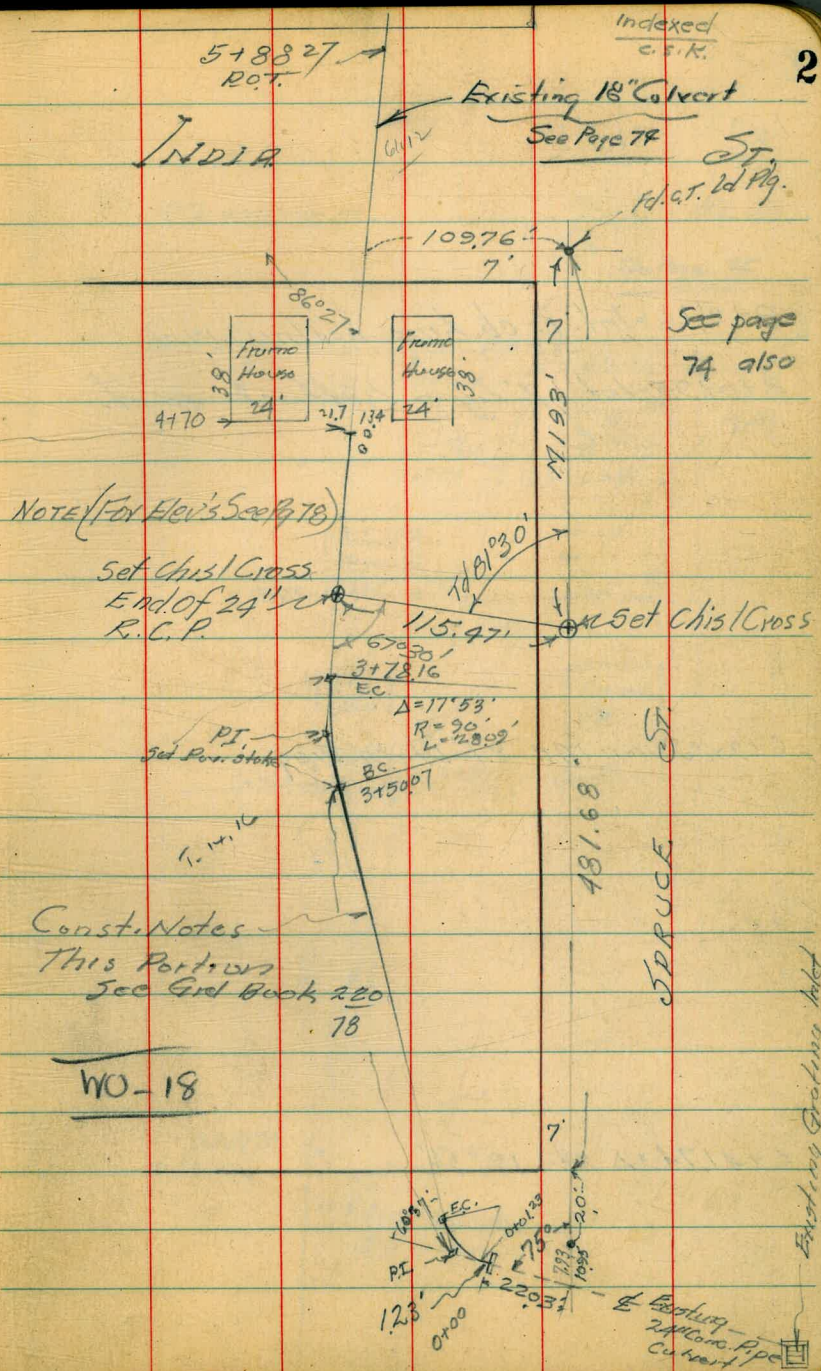 Indexed
C.S.K.
2
5+88.27
P.O.T.
Existing 18" Culvert
See Page 74
INDIA
ST.
Fd. G.T. Ld Plg.
109.76'
7'
86°27'
7
See page
74 also
Frame
House
38'
24'
Frame
House
38'
24'
4+70
21.7
13.4
M193'
NOTE (For Elev's See Pg 78)
Td 81°30'
Set Chisl Cross
End of 24"
R.C.P.
115.47'
Set Chisl Cross
67°30'
3+78.16
E.C.
Δ=17°53'
R=90'
L=28.09'
P.I.
B.C.
3+50.07
T. 14.16
481.68'
SPRUCE ST.
Const. Notes
This Portion
See Grd Book 220
78
WO-18
7'
Existing Grating Inlet
E.C.
0+01.23
75°
20'
7.93
10.95
P.I.
1.23'
0+00
22.03'
℄ Existing
24" Conc. Pipe
Culvert